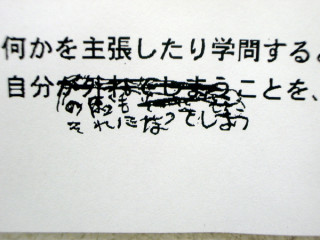 何かを主張したり学問する。
自分が外れてしまうことを、
それになってしまう